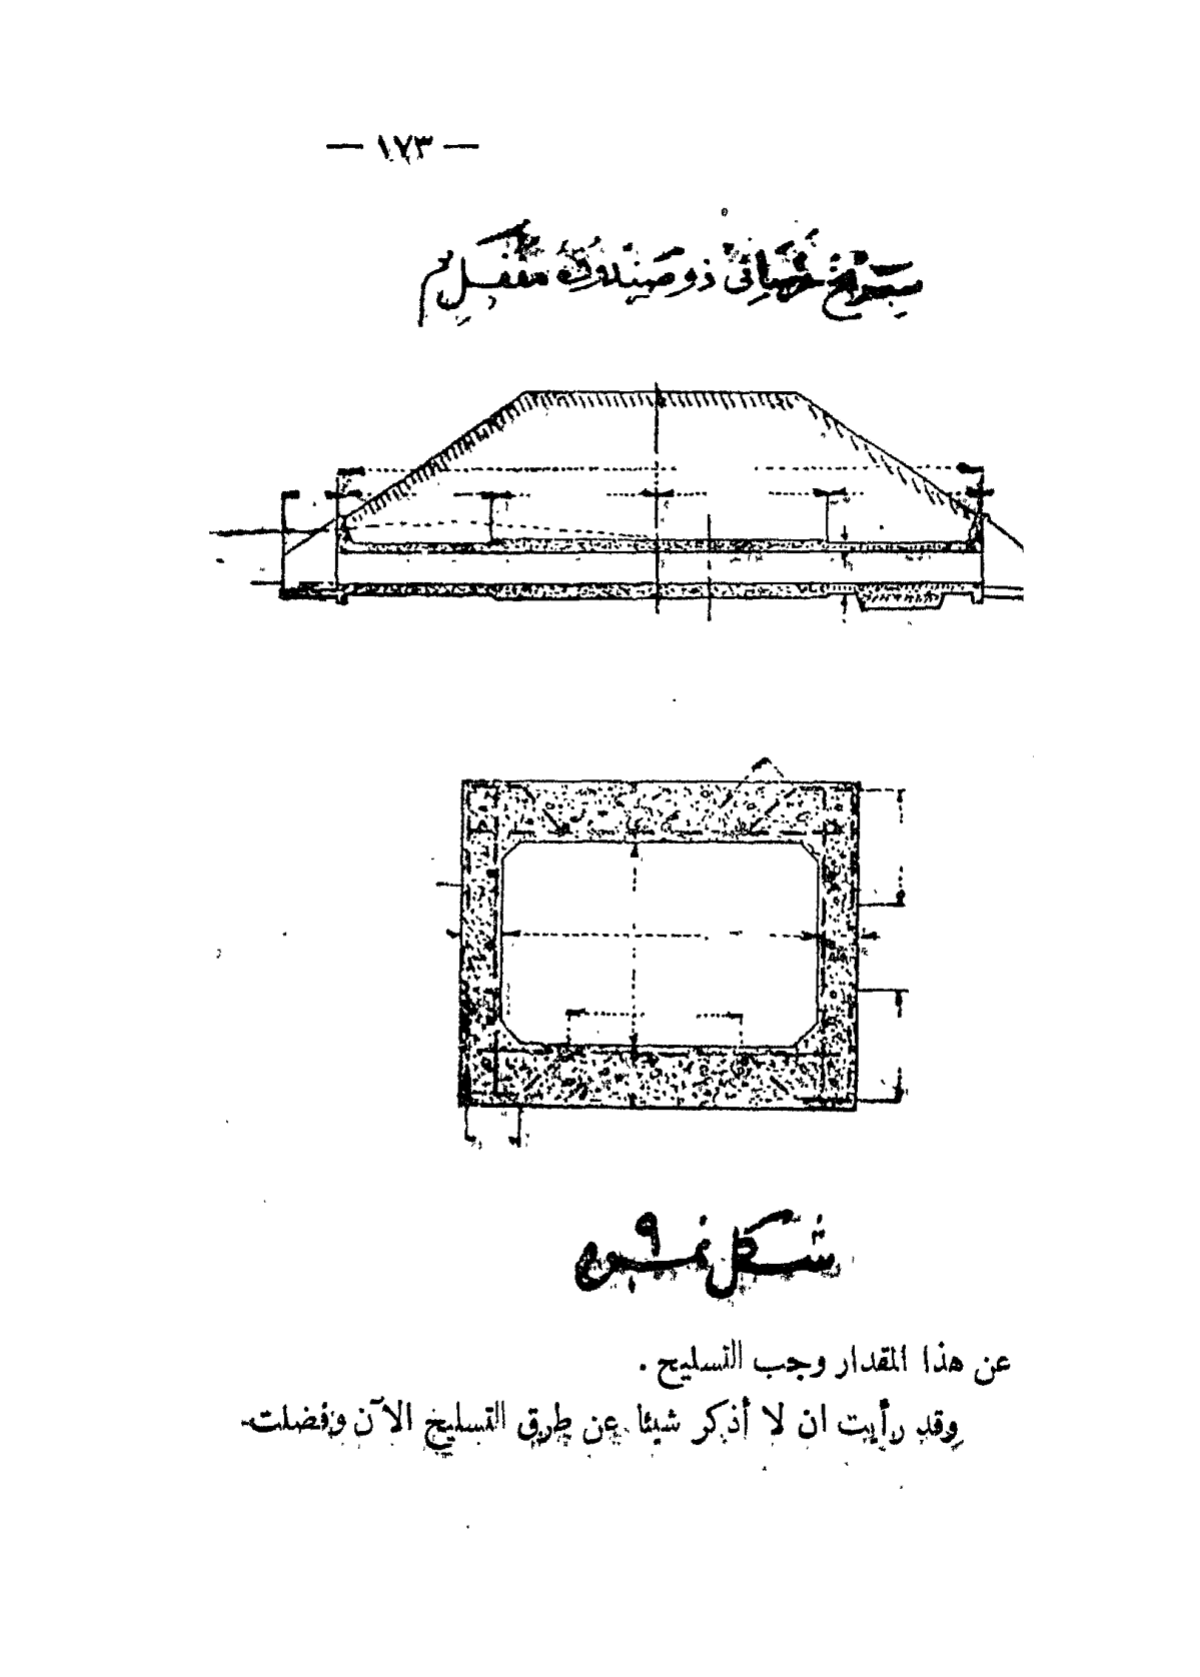 — ١٧٣ —
سربخ خرسانى ذو صندوق مقفل
شكل نمرة ٩
عن هذا المقدار وجب التسليح .
وقد رأيت ان لا أذكر شيئا عن طرق التسليح الآن وفضلت